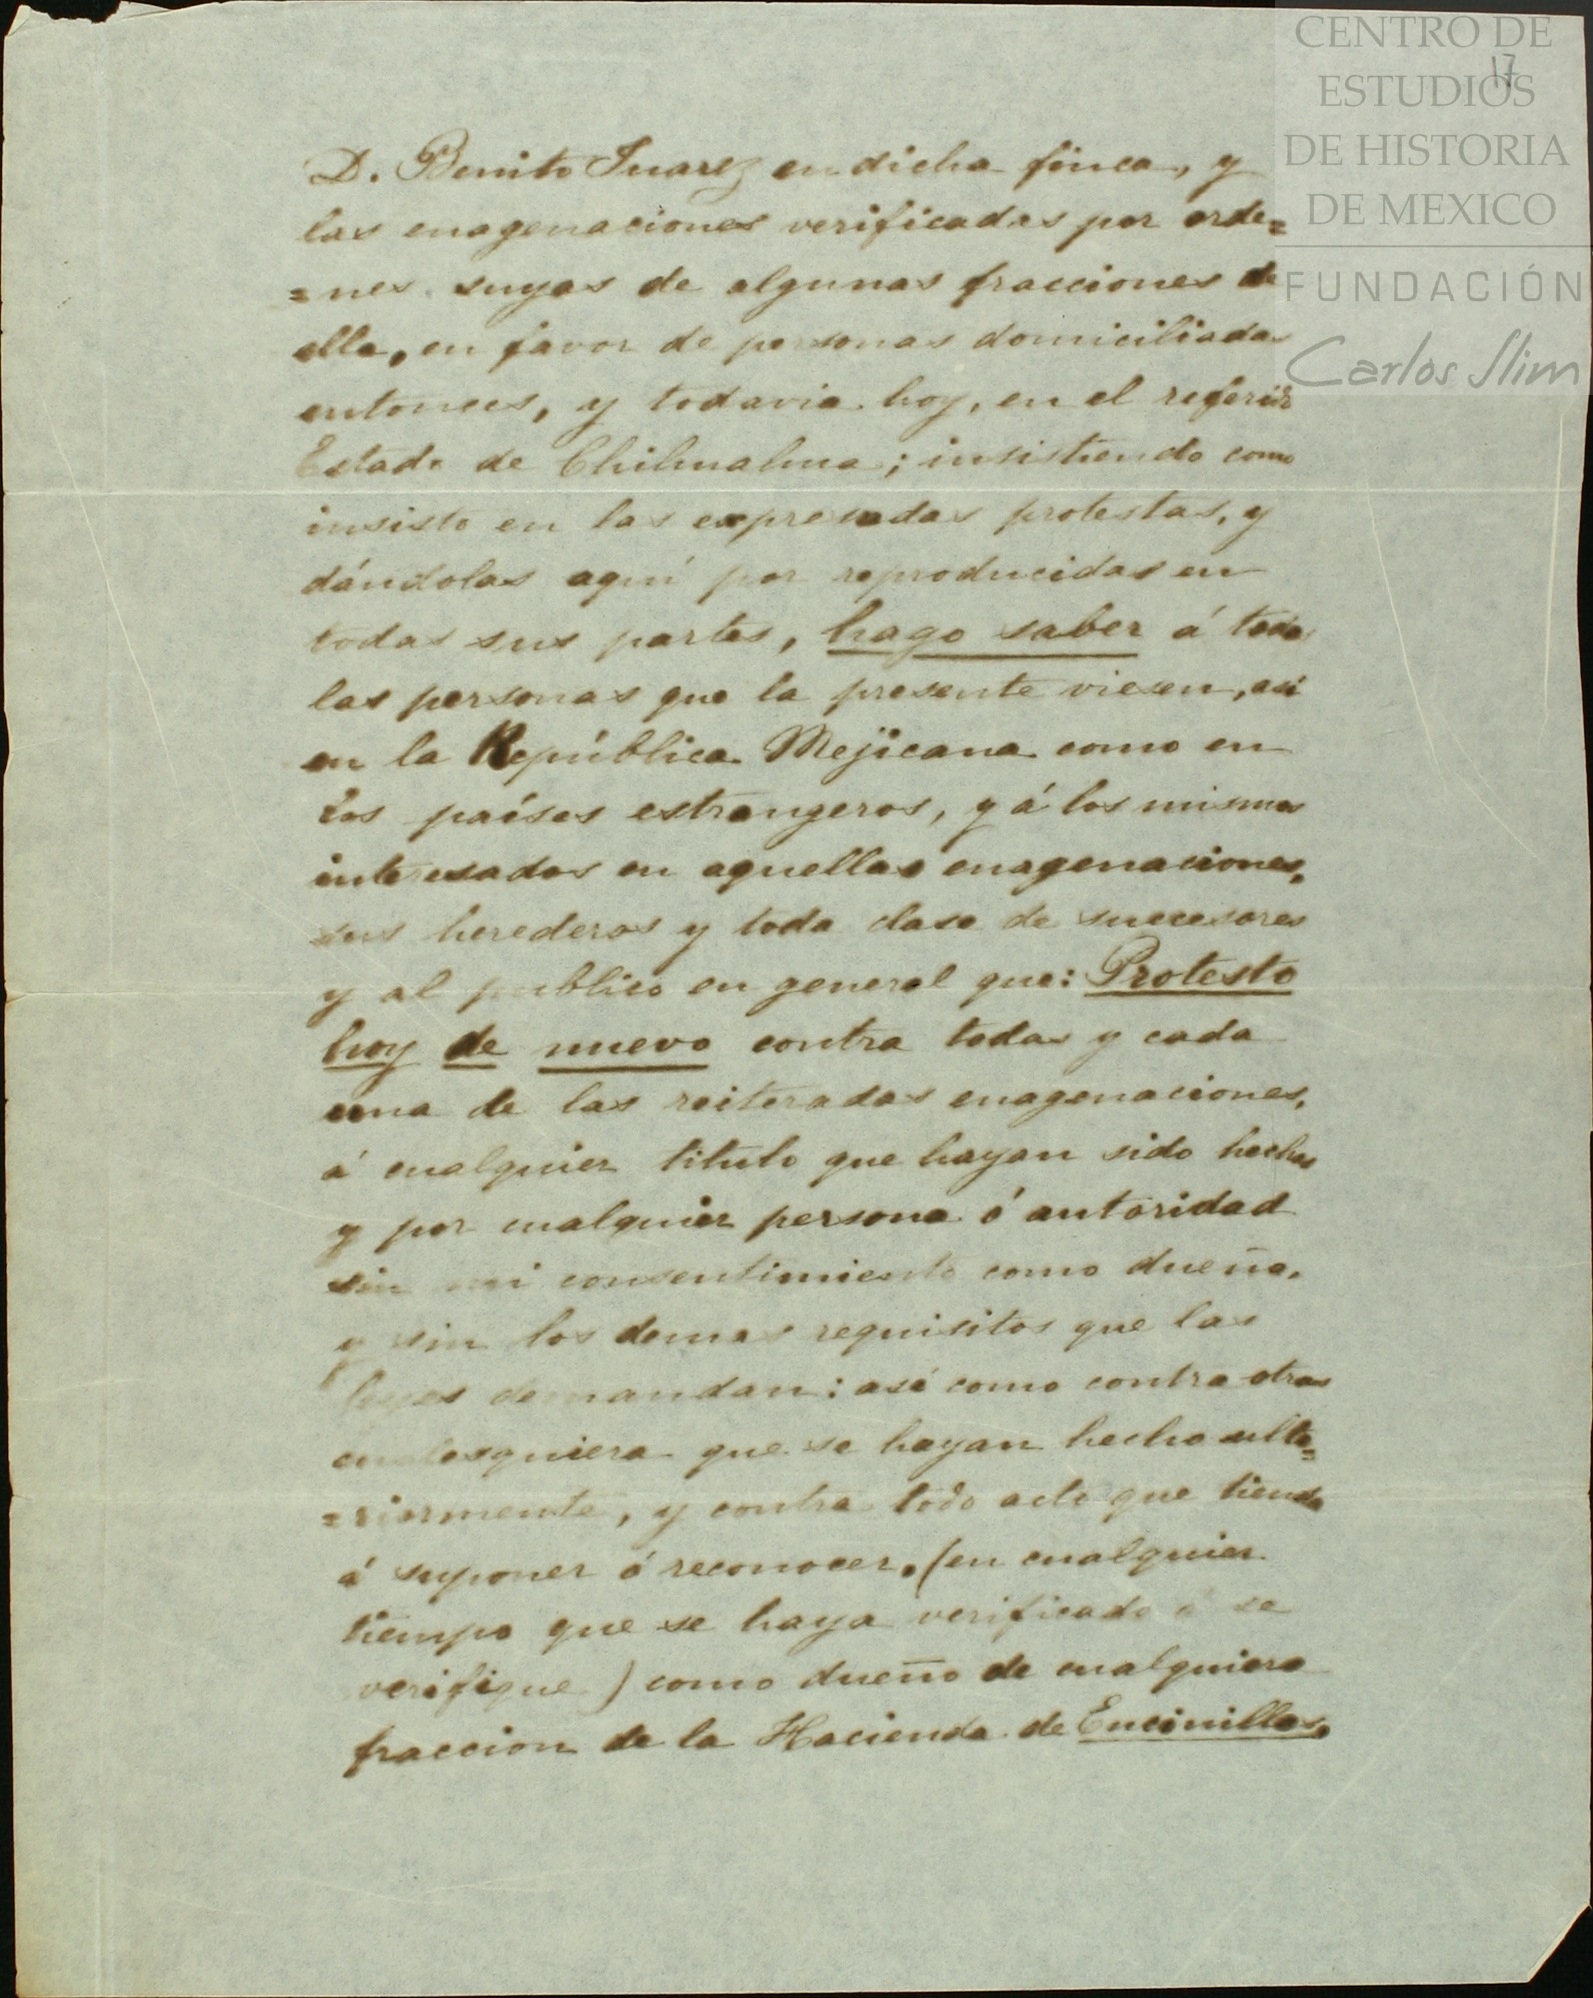 CENTRO DE
ESTUDIOS
DE HISTORIA
DE MEXICO
FUNDACIÓN
Carlos Slim
17
D. Benito Juarez en dicha finca, y
las enagenaciones verificadas por orde=
=nes suyas de algunas fracciones de
ella, en favor de personas domiciliadas
entonces, y todavia hoy, en el referido
Estado de Chihuahua; insistiendo como
insisto en las expresadas protestas, y
dándolas aquí por reproducidas en
todas sus partes, hago saber á todas
las personas que la presente viesen, así
en la República Mejicana como en
los países estrangeros, y á los mismos
interesados en aquellas enagenaciones,
sus herederos y toda clase de succesores
y al publico en general que: Protesto
hoy de nuevo contra todas y cada
una de las reiteradas enagenaciones,
á cualquier titulo que hayan sido hechas
y por cualquier persona ó autoridad
sin mi consentimiento como dueño,
y sin los demas requisitos que las
leyes demandan: así como contra otras
cualesquiera que se hayan hecho ulte=
=riormente, y contra todo acto que tienda
á suponer ó reconocer, (en cualquier
tiempo que se haya verificado ó se
verifique) como dueño de cualquiera
fraccion de la Hacienda de Encinillas,